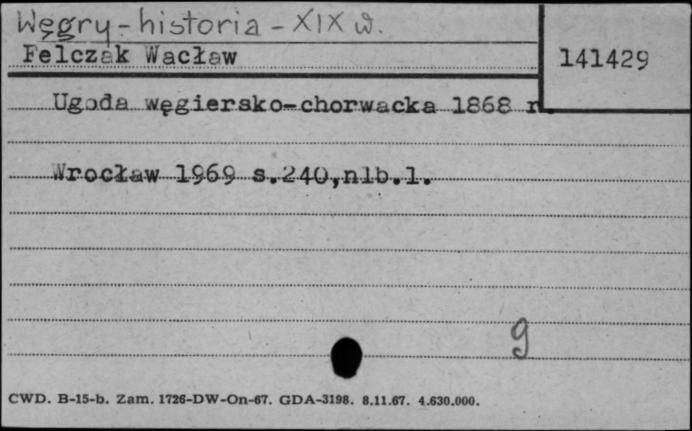 Węgry - historia - XIX w.
Felczak Wacław
141429
Ugoda węgiersko-chorwacka 1868 r.
Wrocław 1969 s.240,nlb.1.
g
CWD. B-15-b. Zam. 1726-DW-On-67. GDA-3198. 8.11.67. 4.630.000.